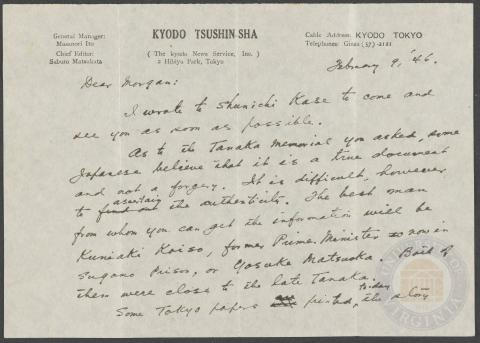 General Manager:
Masanori Ito
Chief Editor:
Saburo Matsukata
KYODO TSUSHIN SHA
( The kyodo News Service, Inc. )
2 Hibiya Park, Tokyo
Cable Address: KYODO TOKYO
Telephones: Ginza (57)-2181
February 9, '46.
Dear Morgan:
I wrote to Shunichi Kase to come and
see you as soon as possible.
As to the Tanaka Memorial you asked, some
Japanese believe that it is a true document
and not a forgery. It is difficult, however
to find out ascertain the authenticity. The best man
from whom you can get the information will be
Kuniaki Koiso, former Prime Minister now in
Sugamo Prison, or Yosuke Matsuoka. Both of
them were close to the late Tanaka.
Some Tokyo papers printed, to-day, the story
VIRGINIA